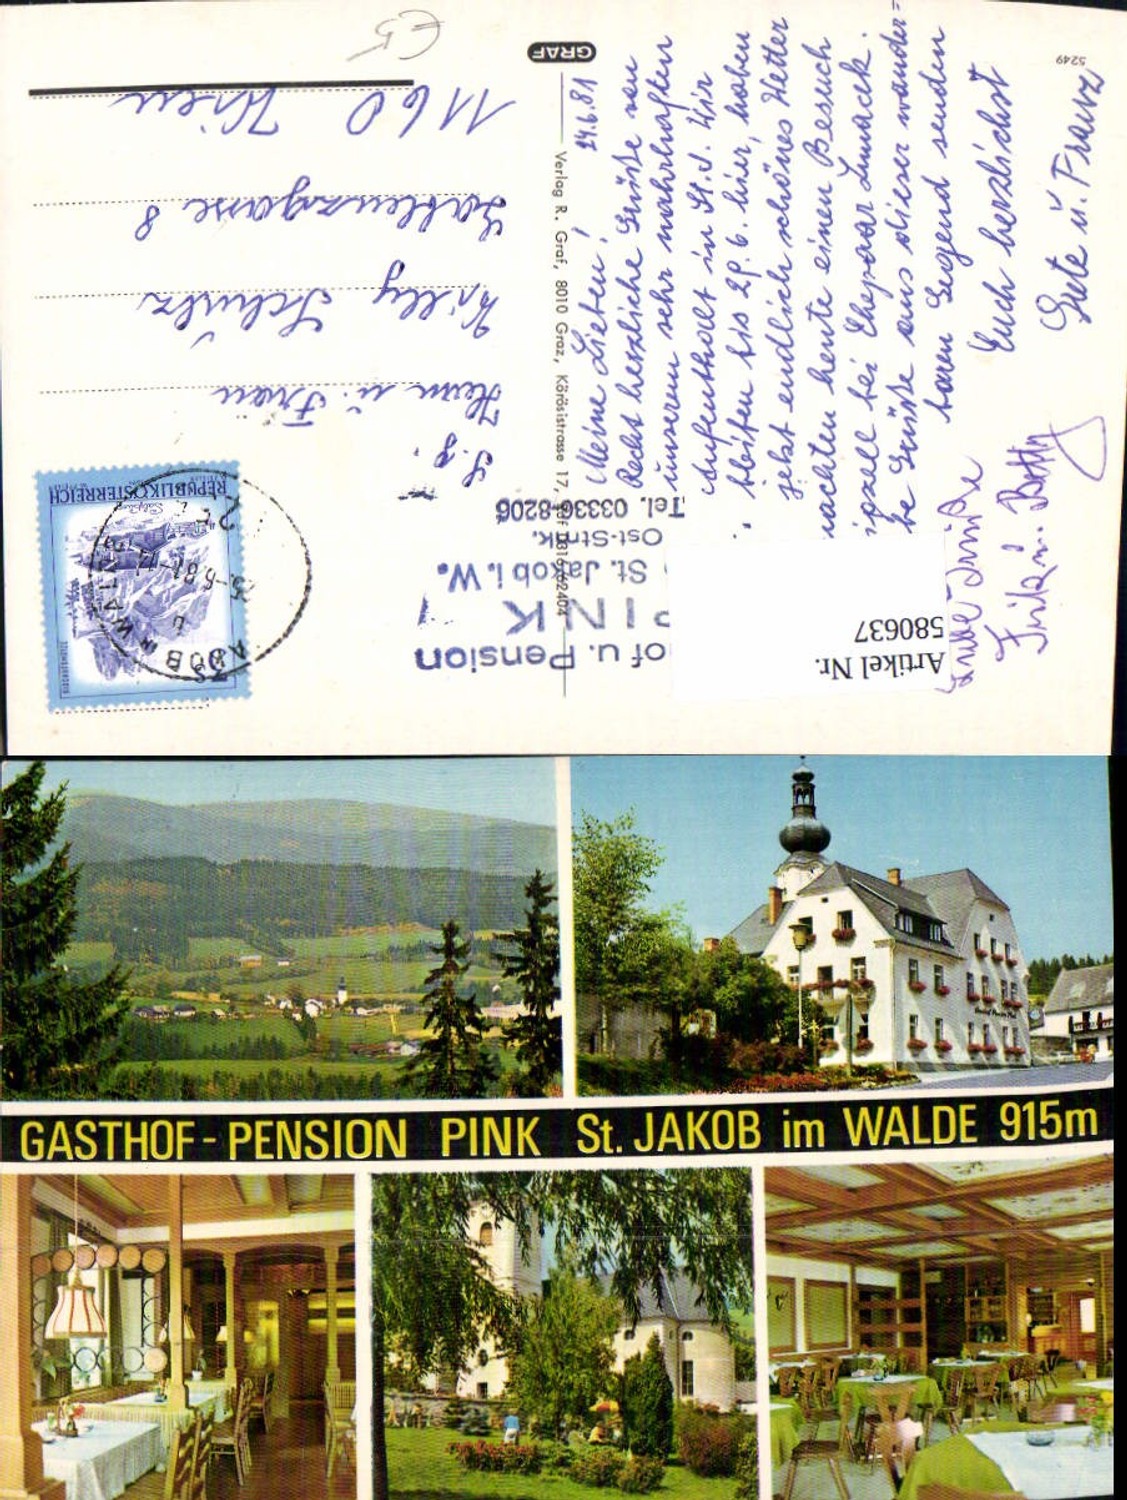 5249
GRAF
Verlag R. Graf, 8010 Graz, Körösistrasse 17,
24.6.81
Meine Lieben!
Recht herzliche Grüße von
unserem sehr nahrhaften
Aufenthalt in St. J. Wir
bleiben bis 29.6. hier, haben
jetzt endlich schönes Wetter
machten heute einen Besuch
bei Ehepaar
be Grüße aus dieser wunder=
baren Gegend senden
Euch herzlichst
Grete u. Franz
Liebe Grüße
1160 Wien
8
Willy Schulz
Herrn u. Frau
REPUBLIK ÖSTERREICH
of u. Pension
PINK
St. Jakob i. W.
Ost-Stmk.
Tel. 03336-8206
Artikel Nr.
580637
GASTHOF - PENSION PINK St. JAKOB im WALDE 915m